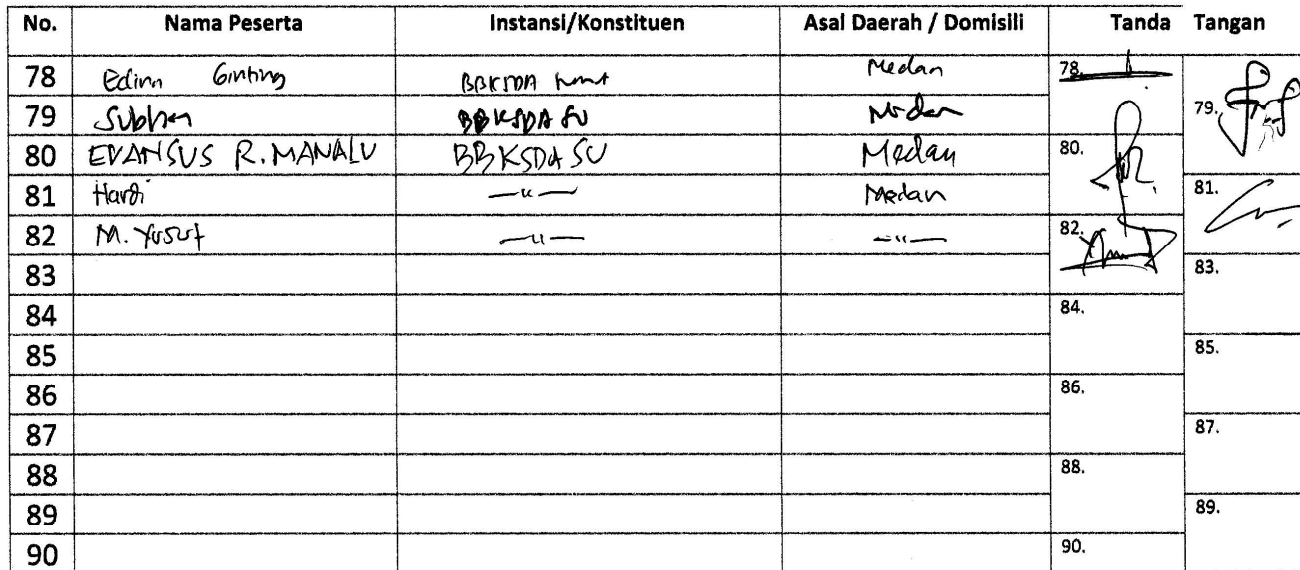 No. Nama Peserta Instansi/Konstituen Asal Daerah / Domisili Tanda Tangan
78 Ginting BBKSDA Medan 78.
79 Subhan BBKSDA SU Medan 79.
80 EVANSUS R. MANALU BBKSDA SU Medan 80.
81 Hardi —〃— Medan 81.
82 M. Yusuf —〃— —〃— 82.
83 83.
84 84.
85 85.
86 86.
87 87.
88 88.
89 89.
90 90.